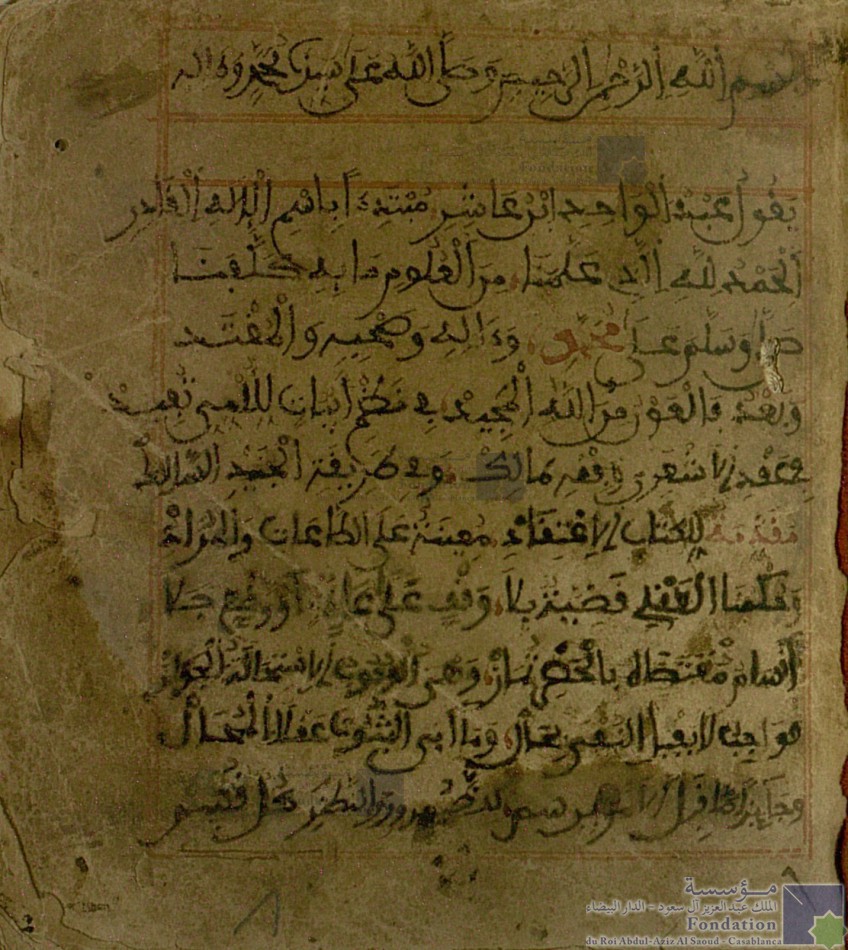 بسم الله الرحمن الرحيم وصلى الله على سيدنا محمد وءاله
يَقُولُ عَبْدُ الْوَاحِدِ ابْنُ عَاشِرِ مُبْتَدِءاً بِاسْمِ الْإِلَهِ الْقَادِرِ
الْحَمْدُ لِلهِ الَّذِي عَلَّمَنَا مِنَ الْعُلُومِ مَا بِهِ كَلَّفَنَا
صَلَّى وَسَلَّمَ عَلَى مُحَمَّدٍ وَءَالِهِ وَصَحْبِهِ وَالْمُقْتَد
وَبَعْدُ فَالْعَوْنُ مِنَ اللهِ الْمَجِيدْ فِي نَظْمِ أَبْيَاتٍ لِلْأُمِّيِّ تُفِيدْ
فِي عَقْدِ الْأَشْعَرِي وَفِقْهِ مَالِكْ وَفِي طَرِيقَةِ الْجُنَيْدِ السَّالِكْ
مُقَدِّمَة لِكِتَابِ الْإِعْتِقَادِ مُعِينَةٌ عَلَى الْمُرَادْ
وَحُكْمُنَا الْعَقْلِي قَضِيَّةٌ بِلَا وَقْفٍ عَلَى عَادَةٍ أَوْ وَضْعٍ جَلَا
أَقْسَامُ مُقْتَضَاهُ بِالْحَصْرِ تُمَازْ وَهِيَ الْوُجُوبُ الْإِسْتِحَالَةُ الْجَوَازْ
فَوَاجِبٌ لَا يَقْبَلُ النَّفْيَ بِحَالْ وَمَا أَبَى الثُّبُوتَ عَقْلًا الْمُحَالْ
وَجَائِزًا مَا قَبِلَ سِمْ لِلضَّرُورِي وَالنَّظَرِي كُلٌّ قُسِمْ
Fondation
مؤسسة
الملك عبد العزيز آل سعود - الدار البيضاء
Fondation
du Roi Abdul-Aziz Al Saoud - Casablanca